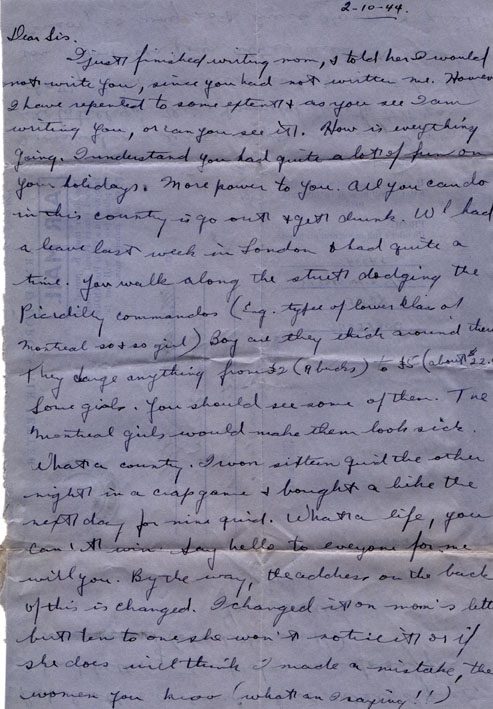 2-10-44.
Dear Sis.
I just finished writing mom, & told her I would
not write you, since you had not written me. Howev
I have repented to some extent & as you see I am
writing you, or can you see it. How is everything
going. I understand you had quite a lot of fun on
your holidays. More power to you. All you can do
in this country is go out & get drunk. W I had
a leave last week in London & had quite a
time. You walk along the street dodging the
Picadilly commandos (Eng. type of lower class of
Montreal so & so girl) Boy are they thick around there
They charge anything from £2 (9 bucks) to £5 (about $22.
Some girls. You should see some of them. The
Montreal girls would make them look sick.
What a county. I won sixteen quid the other
night in a crap game & bought a bike the
next day for nine quid. What a life, you
can't win. Say hello to everyone for me
will you. By the way, the address on the back
of this is changed. I changed it on mom's lett
but ten to one she won't notice it or if
she does will think I made a mistake, the
women you know (what am I saying!!)